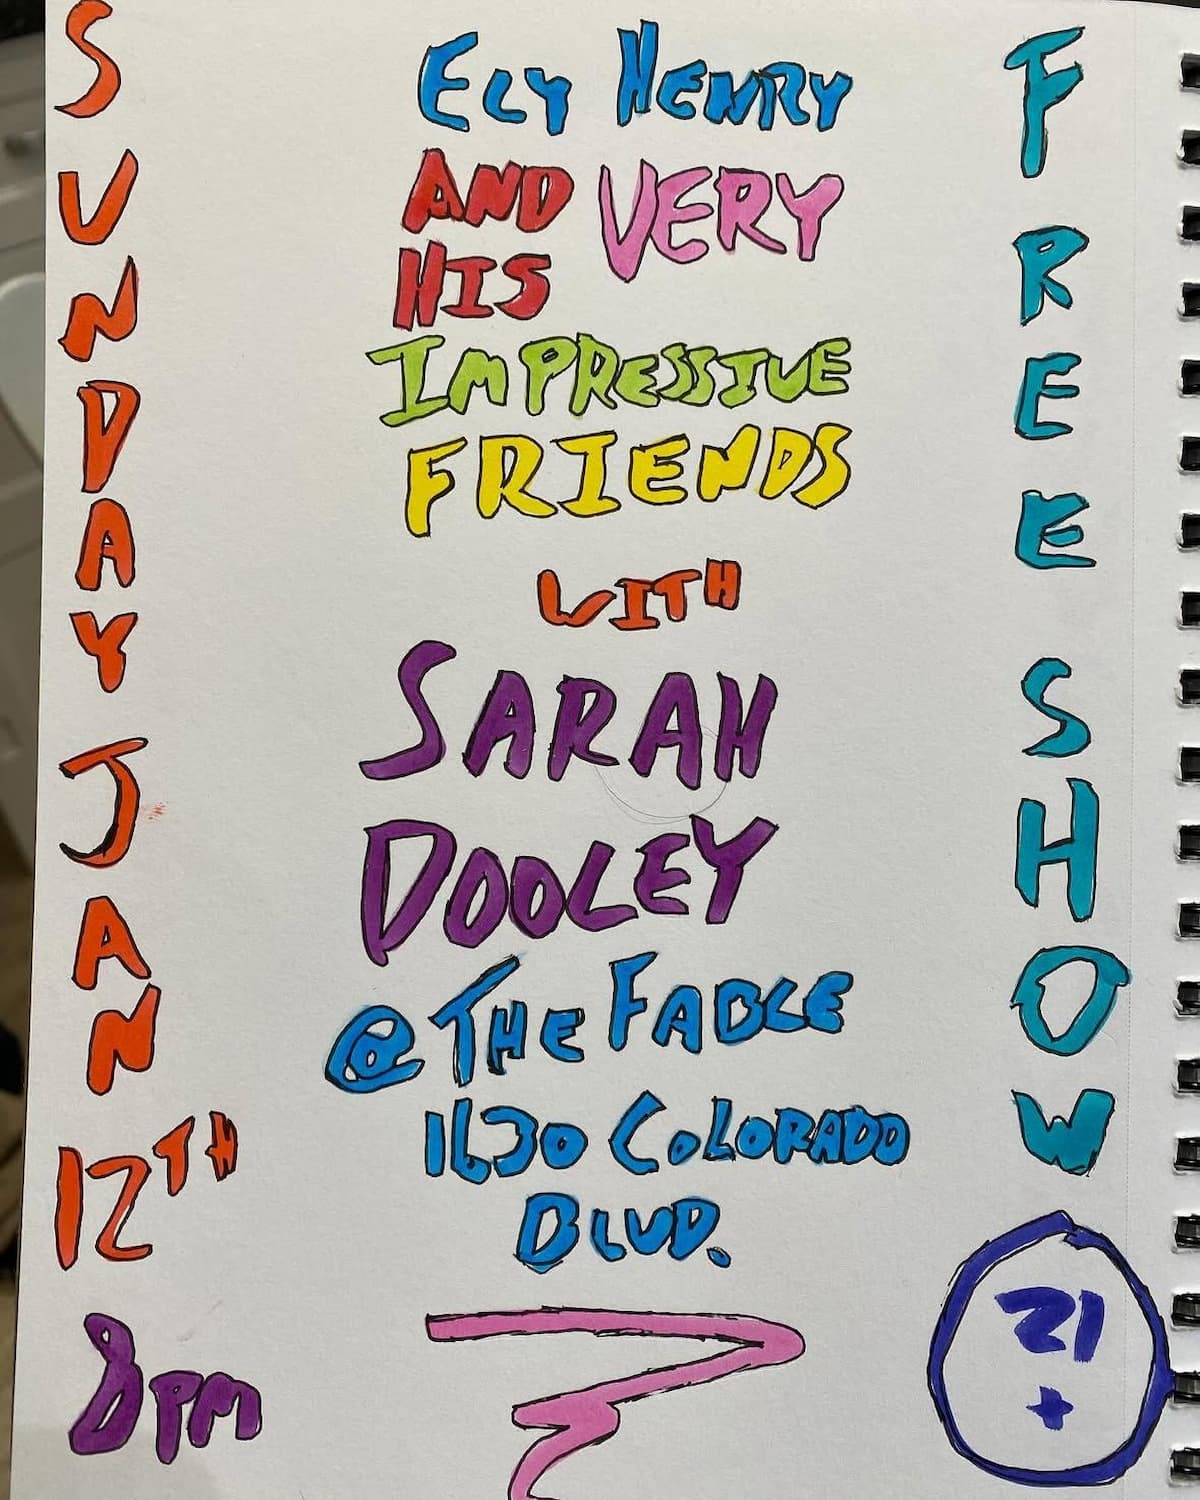 SUNDAY JAN 12TH
8PM
ELY HENRY
AND VERY
HIS
IMPRESSIVE
FRIENDS
WITH
SARAH
DOOLEY
@ THE FABLE
1630 COLORADO
BLVD.
FREE SHOW
21
+